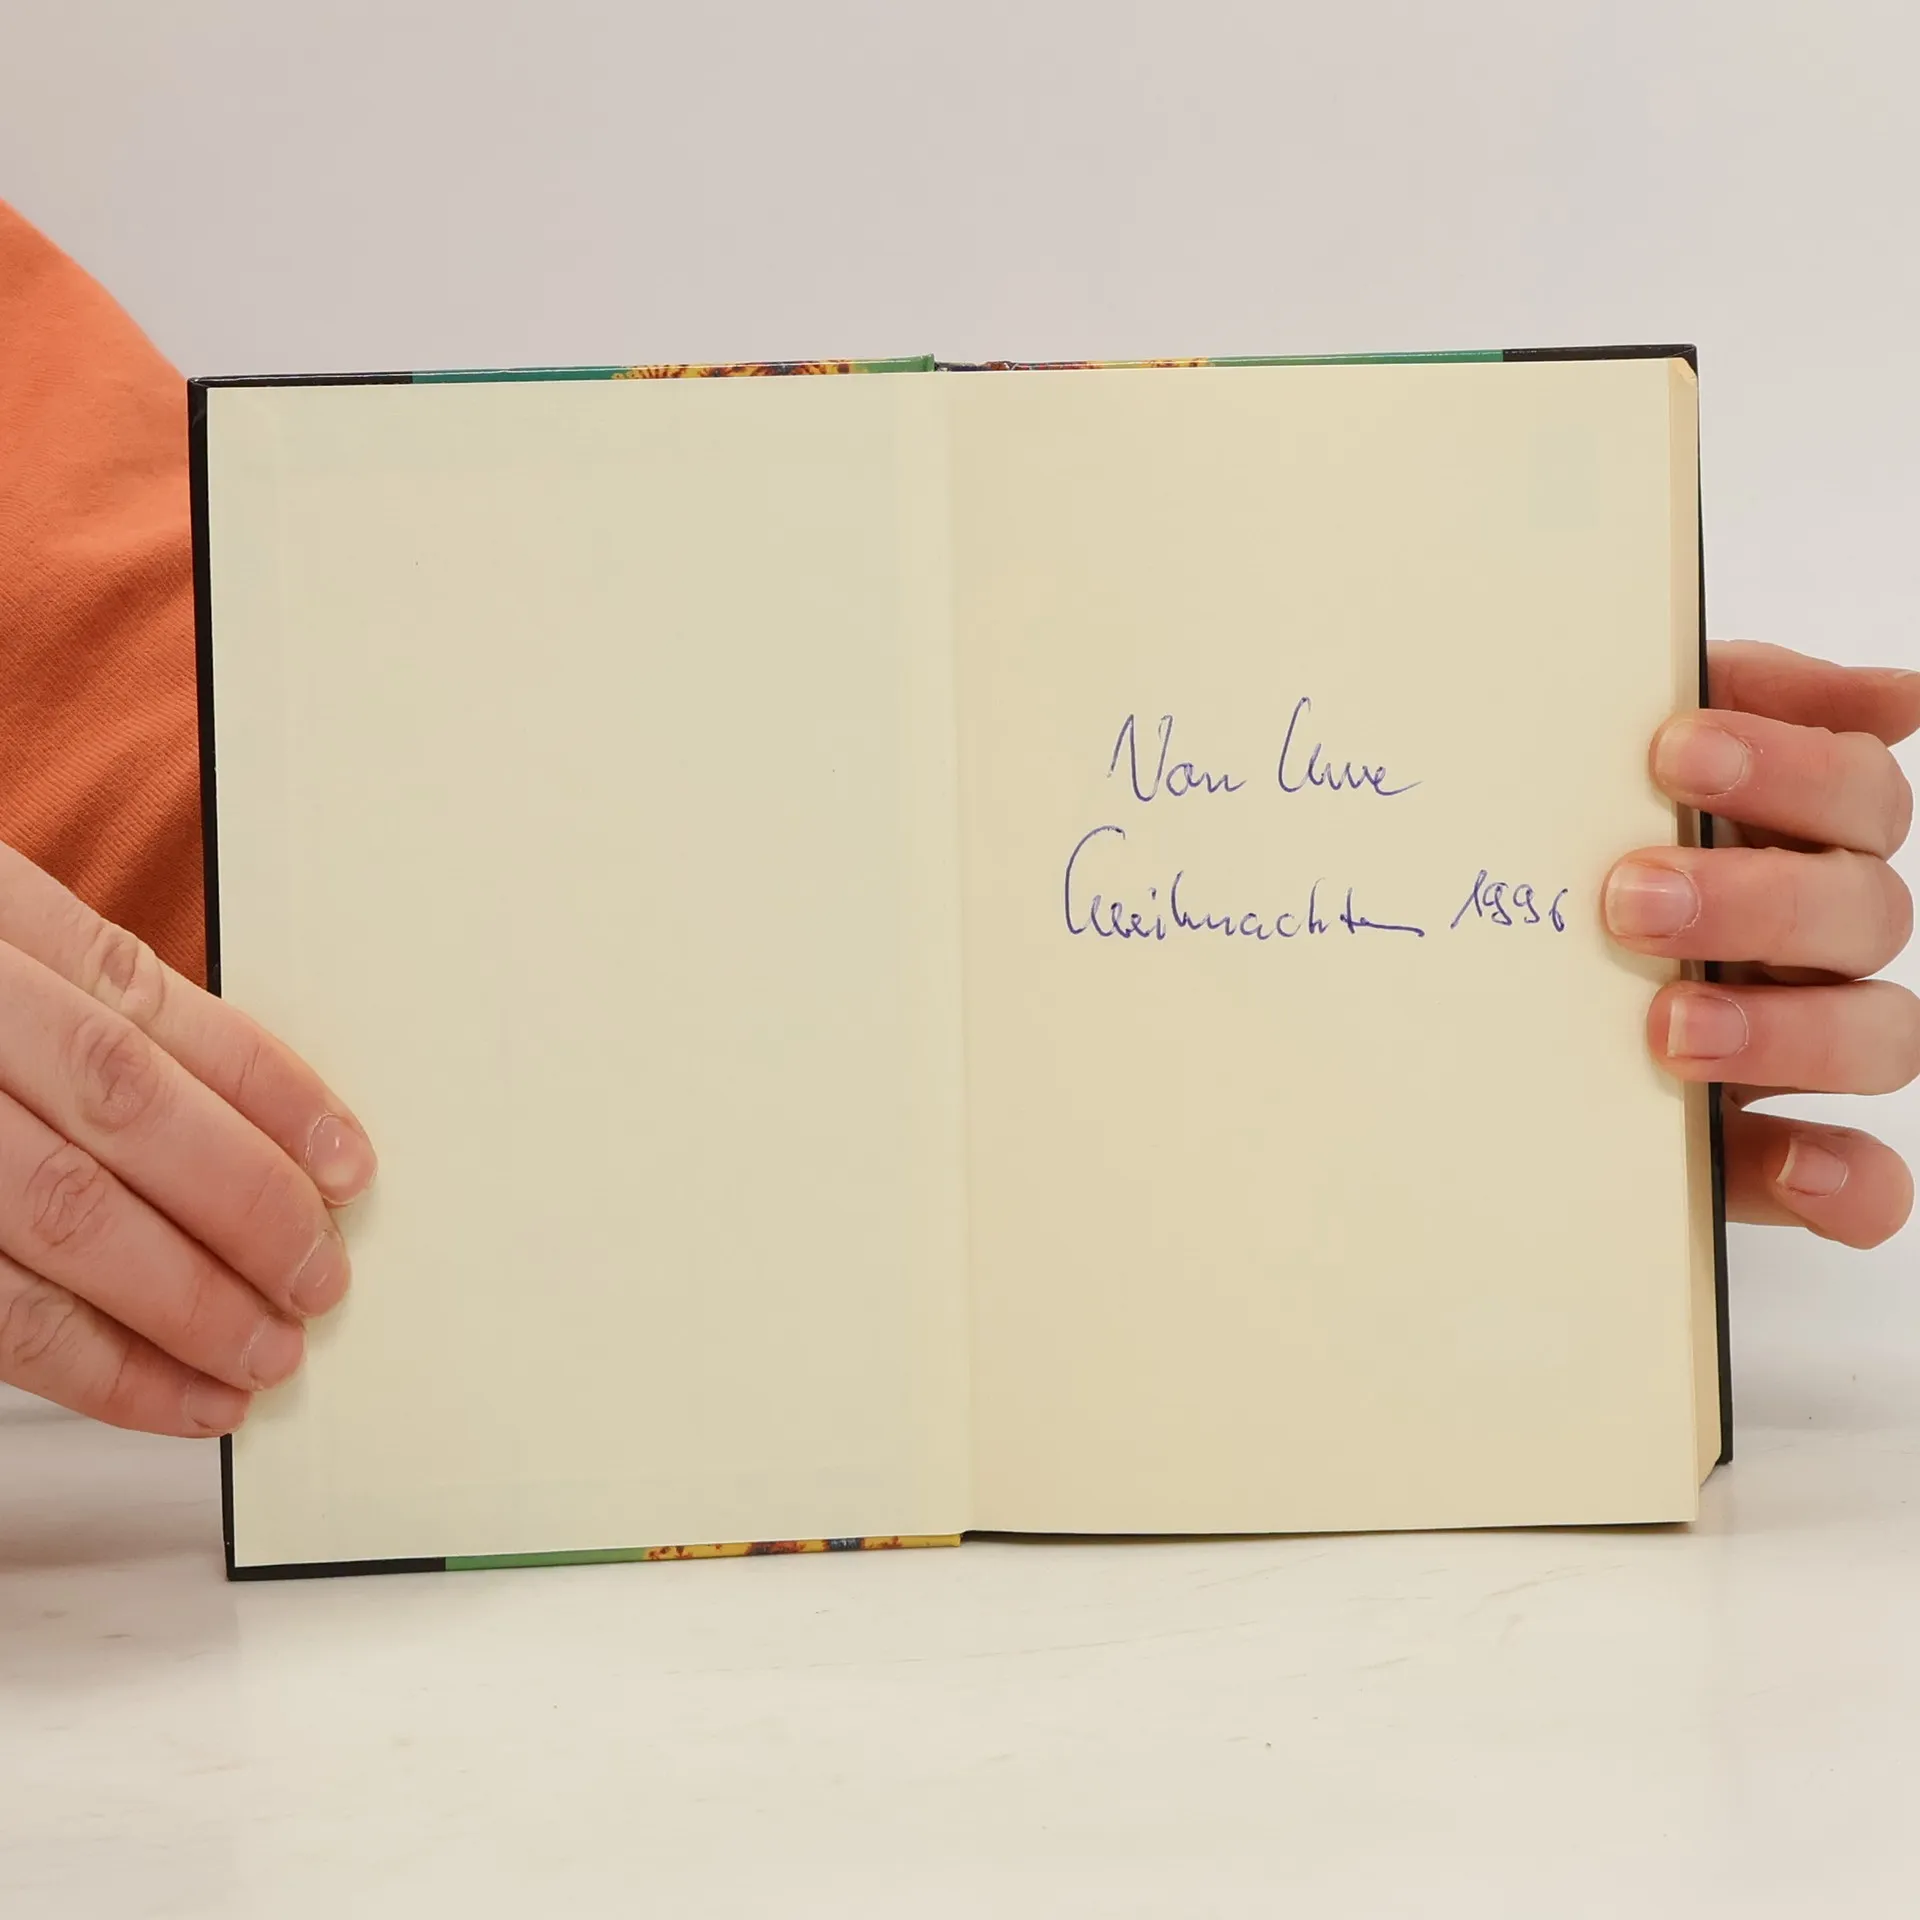 Von Uwe
Weihnachten 1996